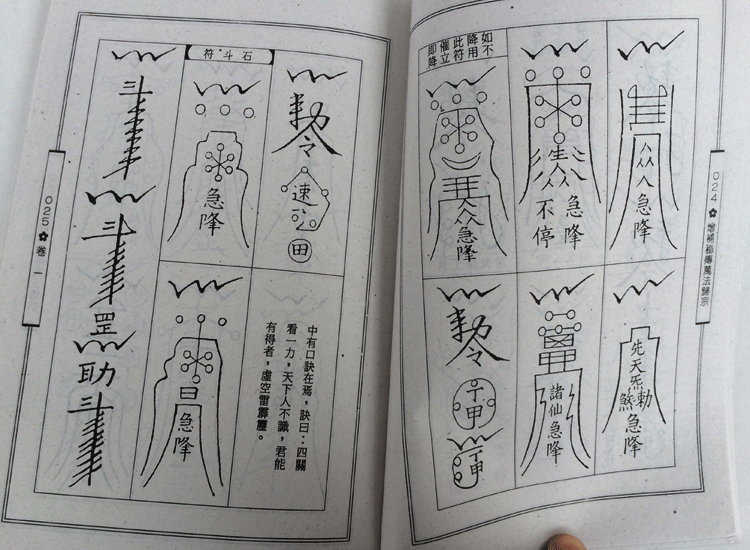 024 ✿ 增補秘傳萬法歸宗
急降
生
急降
不停
如不
降用
此符
催立
即降
急降
先天炁
勅
煞
急降
諸仙急降
勅令
丁甲
丁甲
石斗符
勅令
速
田
急降
罡
助
中有口訣在焉，訣曰：四關
看一力，天下人不識，君能
有得者，虛空雷霹靂。
日
急降
025 ✿ 卷一